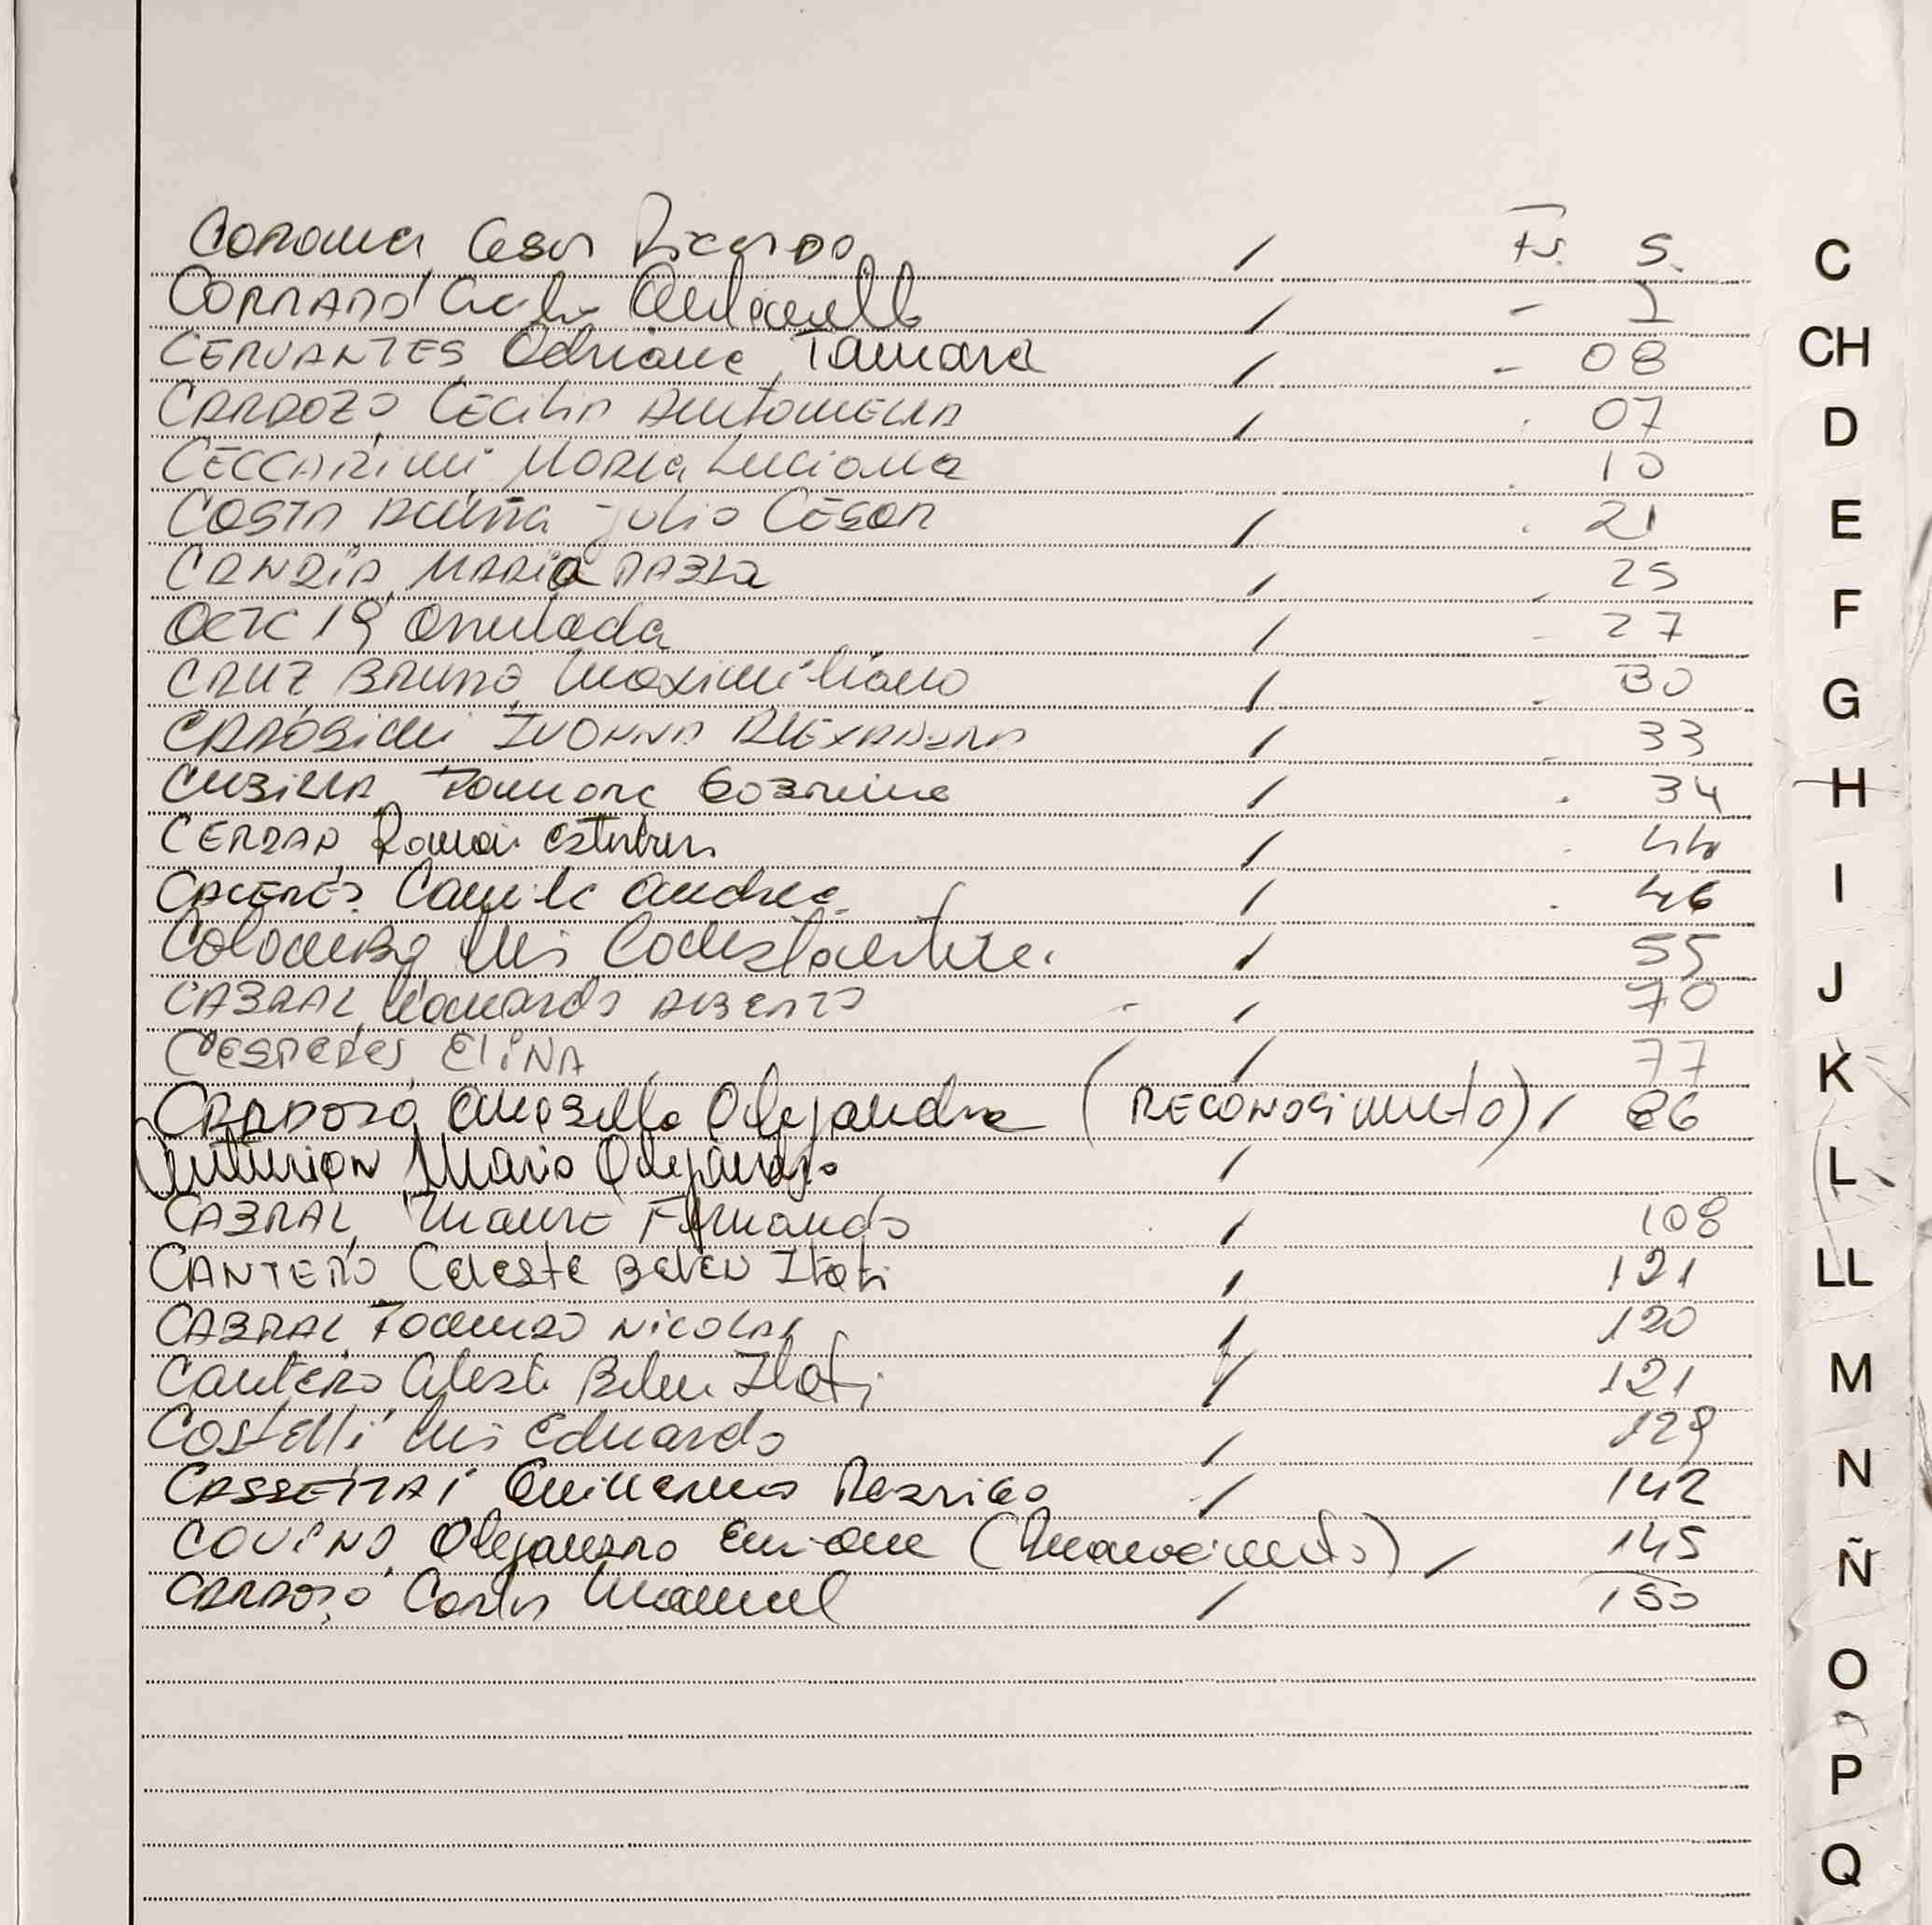 Coronel Cesar Ricardo / Fs. 5. C
CORRADO / - 1
CERVANTES, Adriana Tamara / - 08 CH
CARDOZO, CECILIA ANTONELLA / 07 D
CECCARINI MARIA Luciana 10
COSTA ACUÑA Julio CÉSAR / 21 E
CANDIA, MARIA PABLA / 25
Acta 19 anulada / 27 F
CRUZ BRUNO, Maximiliano / 30 G
IVONNA ALEXANDRA / 33
CUBILLA, Tamara / 34 H
CERDAN, Roman esteban / 44
CACERES Camila Andrea / 46 I
Colombo Luis / 55
CABRAL, Leonardo ALBERTO / 70 J
CESPEDES, ELINA / 77 K
CARDOZO Alejandra (RECONOCIMIENTO) / 86
Centurion Mario Alejandro / L
CABRAL, Fernando / 108
CANTERO Celeste Belen Itati / 121 LL
CABRAL NICOLAS / 120
Cantero Celeste Belen Itati / 121 M
Costelli Luis Eduardo / 129
Guillermo Rodrigo / 142 N
COVINO, Alejandro Enrique / 145 Ñ
CARDOZO Carlos Manuel / 150
O
P
Q